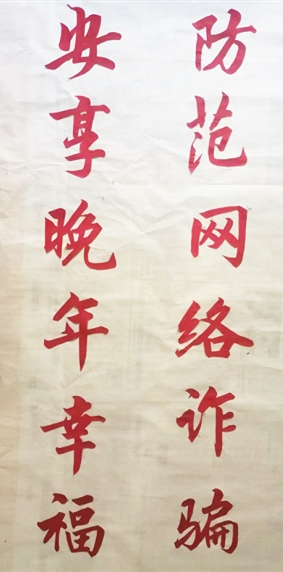 防范网络诈骗
安享晚年幸福